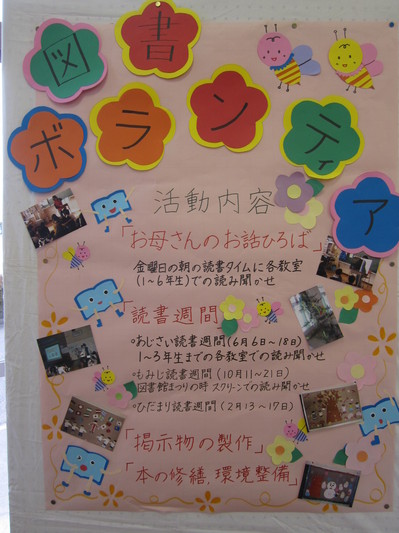 図書
ボランティア
活動内容
「お母さんのお話ひろば」
金曜日の朝の読書タイムに各教室
(1~6年生)での読み聞かせ
「読書週間」
○あじさい読書週間(6月6日~18日)
1~3年生までの各教室での読み聞かせ
○もみじ読書週間(10月11~21日)
図書館まつりの時 スクリーンでの読み聞かせ
○ひだまり読書週間(2月13~17日)
「掲示物の製作」
「本の修繕,環境整備」